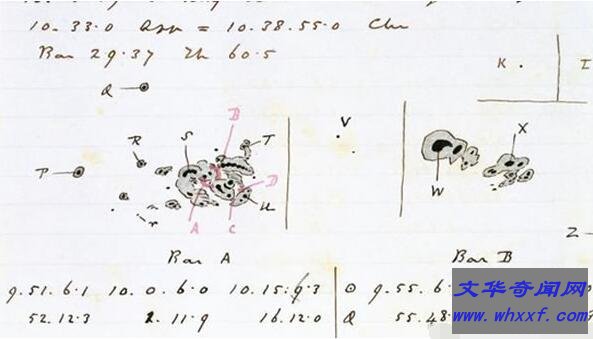 10.33.0 App = 10.38.55.0 Chr
Bar 29.37 Th 60.5
Q
K
I
B
V
R
S
T
X
P
D
W
A
C
U
Z
Bar A
Bar B
9.51.6.1 10.0.6.0 10.15.9.3 ⊙ 9.55.6
52.12.3 2.11.9 16.12.0 Q 55.48
文华奇闻网
www.whxxf.com